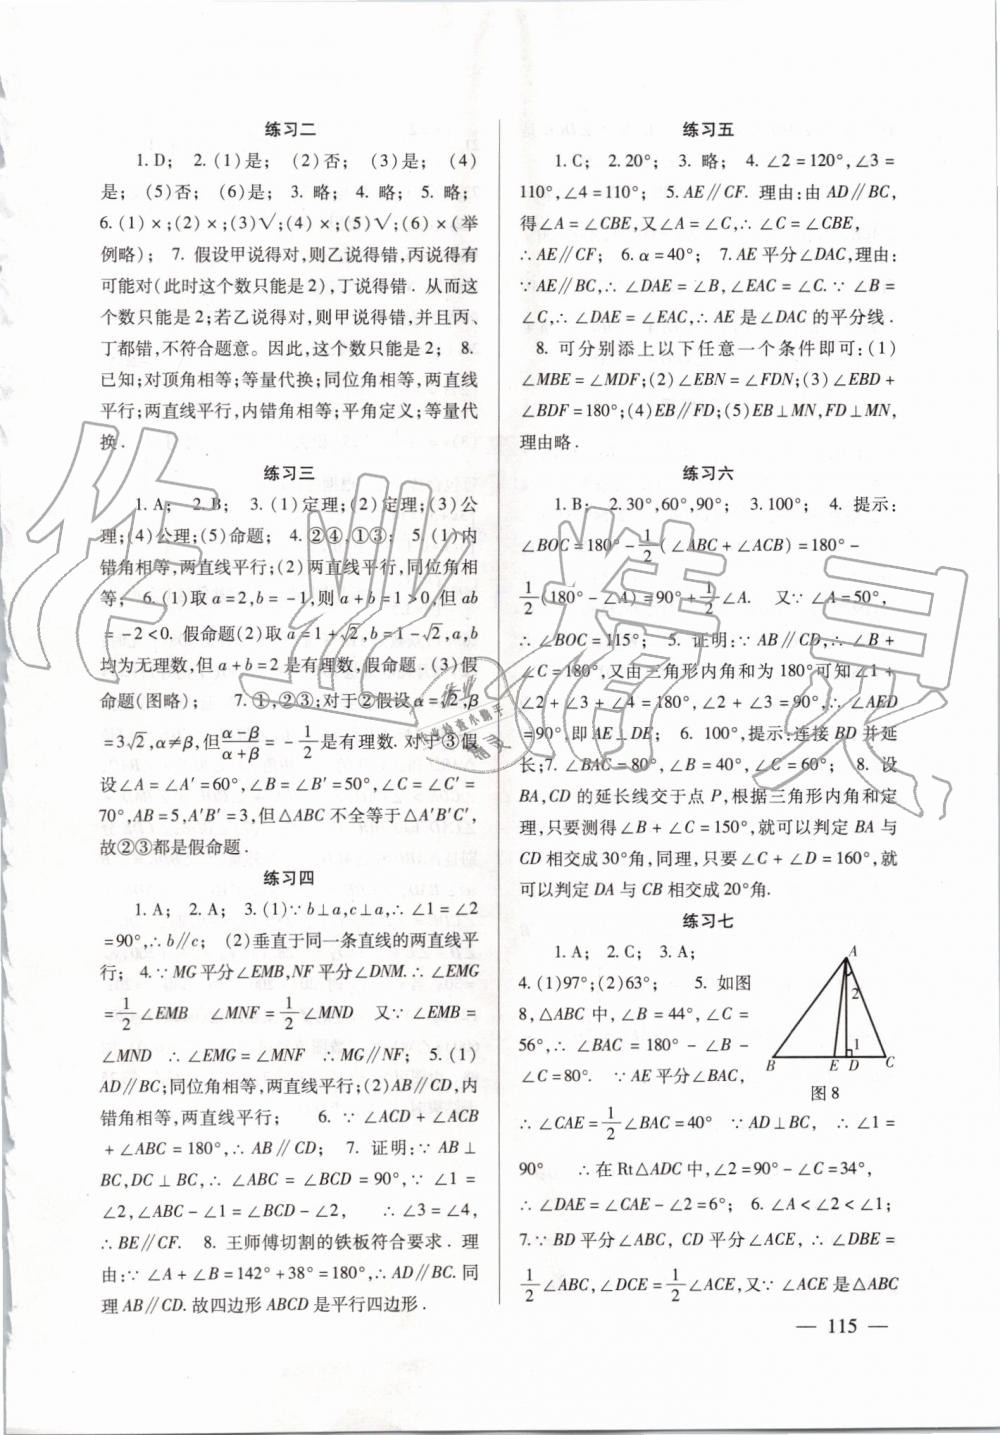 练习二
1. D； 2. (1)是； (2)否； (3)是； (4)
是； (5)否； (6)是； 3. 略； 4. 略； 5. 略；
6. (1)×；(2)×；(3)√；(4)×；(5)√；(6)×(举
例略)； 7. 假设甲说得对，则乙说得错，丙说得有
可能对(此时这个数只能是2)，丁说得错．从而这
个数只能是2；若乙说得对，则甲说得错，并且丙、
丁都错，不符合题意。因此，这个数只能是2； 8.
已知；对顶角相等；等量代换；同位角相等，两直线
平行；两直线平行，内错角相等；平角定义；等量代
换．
练习三
1. A； 2. B； 3. (1)定理；(2)定理；(3)公
理；(4)公理；(5)命题； 4. ②④，①③； 5. (1)内
错角相等，两直线平行；(2)两直线平行，同位角相
等； 6. (1)取 a=2,b=-1,则 a+b=1>0,但 ab
=-2<0. 假命题(2)取 a=1+√2,b=1-√2,a,b
均为无理数,但 a+b=2 是有理数,假命题. (3)假
命题(图略)； 7. ①,②③;对于②假设 α=√2,β
=3√2,α≠β,但(α-β)/(α+β)=-1/2是有理数. 对于③假
设∠A=∠A′=60°,∠B=∠B′=50°,∠C=∠C′=
70°,AB=5,A′B′=3,但△ABC 不全等于△A′B′C′,
故②③都是假命题．
练习四
1. A； 2. A； 3. (1)∵b⊥a,c⊥a,∴∠1=∠2
=90°,∴b∥c； (2)垂直于同一条直线的两直线平
行； 4.∵MG 平分∠EMB,NF 平分∠DNM.∴∠EMG
=1/2∠EMB ∠MNF=1/2∠MND 又∵∠EMB=
∠MND ∴∠EMG=∠MNF ∴MG∥NF； 5. (1)
AD∥BC;同位角相等,两直线平行;(2)AB∥CD,内
错角相等,两直线平行； 6. ∵∠ACD+∠ACB
+∠ABC=180°,∴AB∥CD； 7. 证明:∵AB⊥
BC,DC⊥BC,∴∠ABC=∠BCD=90°,∵∠1=
∠2,∠ABC-∠1=∠BCD-∠2, ∴∠3=∠4,
∴BE∥CF. 8. 王师傅切割的铁板符合要求．理
由:∵∠A+∠B=142°+38°=180°,∴AD∥BC.同
理AB∥CD.故四边形 ABCD 是平行四边形．
练习五
1. C； 2. 20°； 3. 略； 4. ∠2=120°,∠3=
110°,∠4=110°； 5. AE∥CF. 理由:由 AD∥BC,
得∠A=∠CBE,又∠A=∠C,∴∠C=∠CBE,
∴AE∥CF； 6. α=40°； 7. AE 平分∠DAC,理由:
∵AE∥BC,∴∠DAE=∠B,∠EAC=∠C.∵∠B=
∠C,∴∠DAE=∠EAC,∴AE 是∠DAC 的平分线．
8. 可分别添上以下任意一个条件即可:(1)
∠MBE=∠MDF;(2)∠EBN=∠FDN;(3)∠EBD+
∠BDF=180°;(4)EB∥FD;(5)EB⊥MN,FD⊥MN,
理由略．
练习六
1. B； 2.30°,60°,90°； 3.100°； 4. 提示:
∠BOC=180°-1/2(∠ABC+∠ACB)=180°-
1/2(180°-∠A)=90°+1/2∠A. 又∵∠A=50°,
∴∠BOC=115°； 5. 证明:∵AB∥CD,∴∠B+
∠C=180°,又由三角形内角和为180°可知∠1+
∠2+∠3+∠4=180°,∴∠2+∠3=90°,∴∠AED
=90°,即 AE⊥DE； 6. 100°,提示:连接 BD 并延
长;7. ∠BAC=80°,∠B=40°,∠C=60°； 8. 设
BA,CD 的延长线交于点 P,根据三角形内角和定
理,只要测得∠B+∠C=150°,就可以判定 BA 与
CD 相交成30°角,同理,只要∠C+∠D=160°,就
可以判定 DA 与 CB 相交成20°角.
练习七
1. A； 2. C； 3. A；
4. (1)97°;(2)63°； 5. 如图
8,△ABC 中,∠B=44°,∠C=
56°,∴∠BAC=180°-∠B-
∠C=80°. ∵AE 平分∠BAC,
∴∠CAE=1/2∠BAC=40° ∵AD⊥BC, ∴∠1=
90° ∴在 Rt△ADC 中,∠2=90°-∠C=34°,
∴∠DAE=∠CAE-∠2=6°； 6. ∠A<∠2<∠1；
7.∵BD 平分∠ABC, CD 平分∠ACE,∴∠DBE=
1/2∠ABC,∠DCE=1/2∠ACE,又∵∠ACE 是△ABC
A
2
1
B E D C
图8
— 115 —
作业精灵